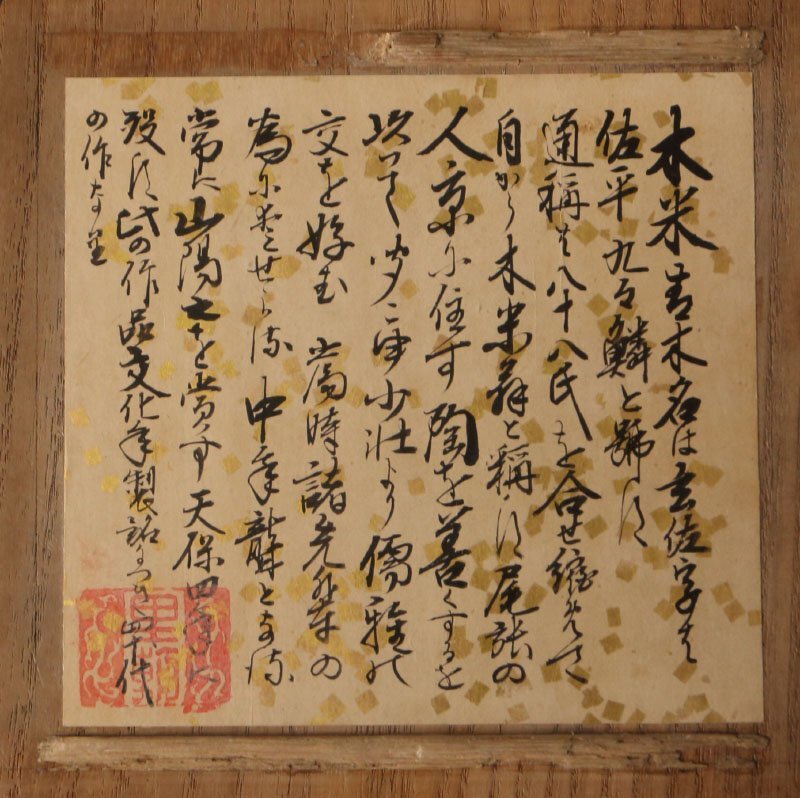 木米青木名は玄佐字は
佐平九々鱗と號す
通称は八十八氏を合せ縮めて
自から木米と称す尾張の
人京に住す陶を善くするを
以て聞こゆ少壮より儒雅の
交を好む当時諸先輩の
為に せらる中年聾となる
常に山陽之を賞す天保四年に
歿す此の作品文化年製銘 四十代
の作なり